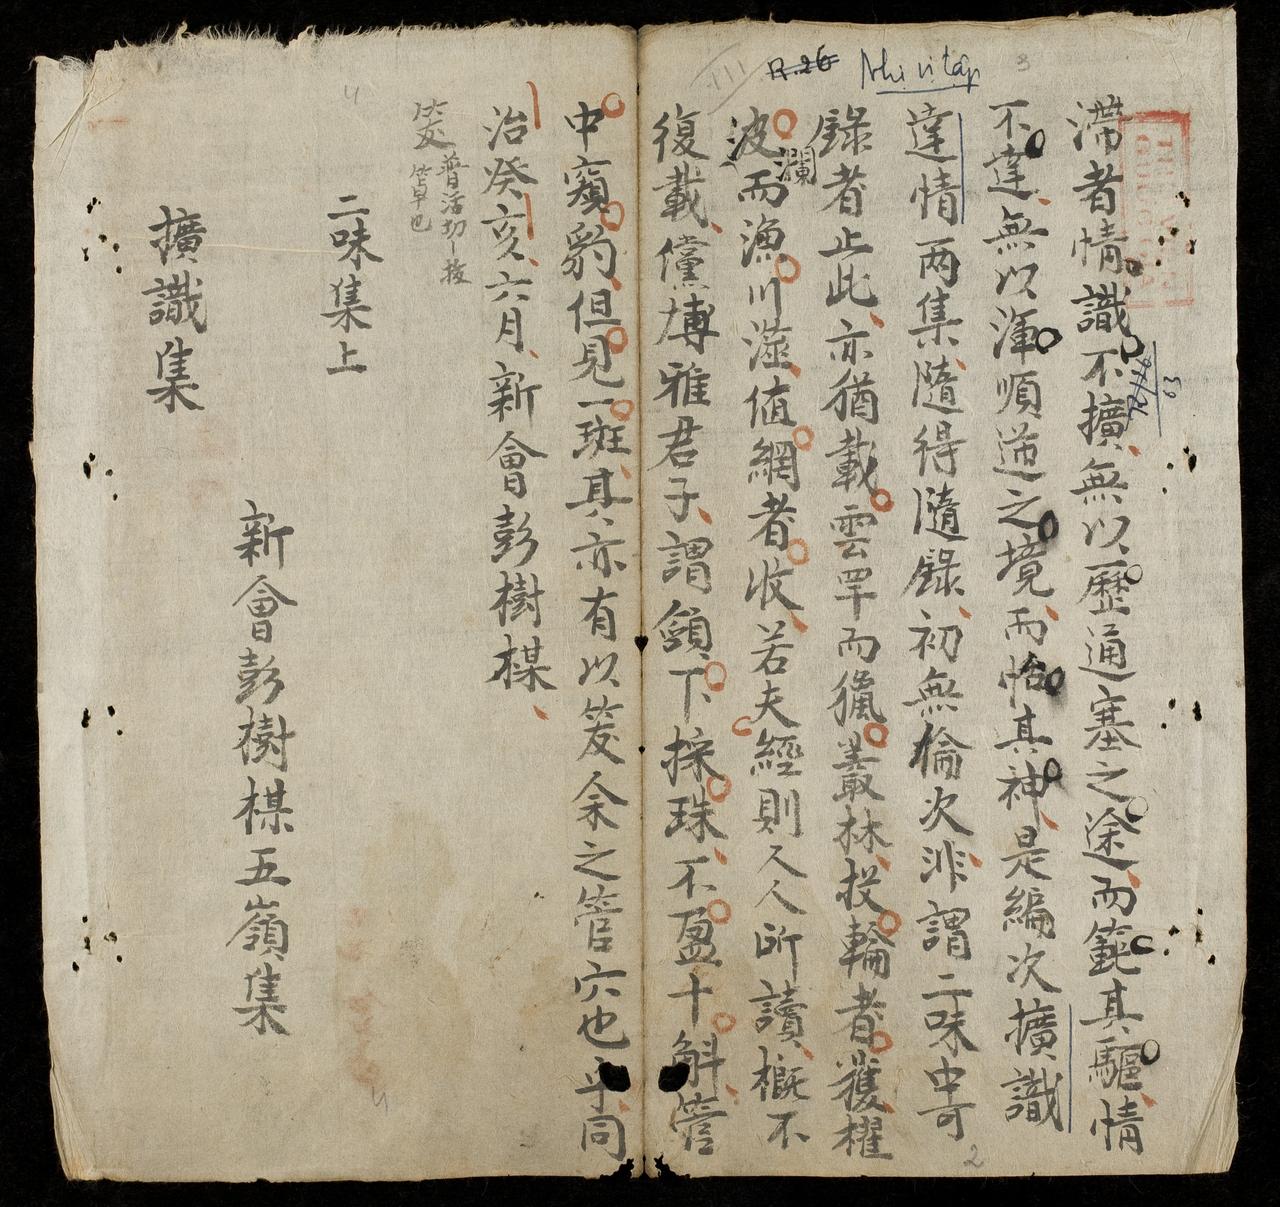 Nhị vị tập
滯者情識不擴無以歷通塞之途而範其驅情
不達無以渾順逆之境而怡其神是編次擴識
達情兩集隨得隨錄初無倫次非謂二味中可
錄者止此亦猶載雲罕而獵叢林投輪者獲櫂
波瀾而漁川澨值網者收若夫經則人人所讀概不
復載儻博雅君子謂頷下探珠不盈十斛管
中窺豹但見一斑其亦有以笅余之管穴也乎同
治癸亥六月新會彭樹楳
二味集上
新會彭樹楳五嶺集
擴識集
2
3